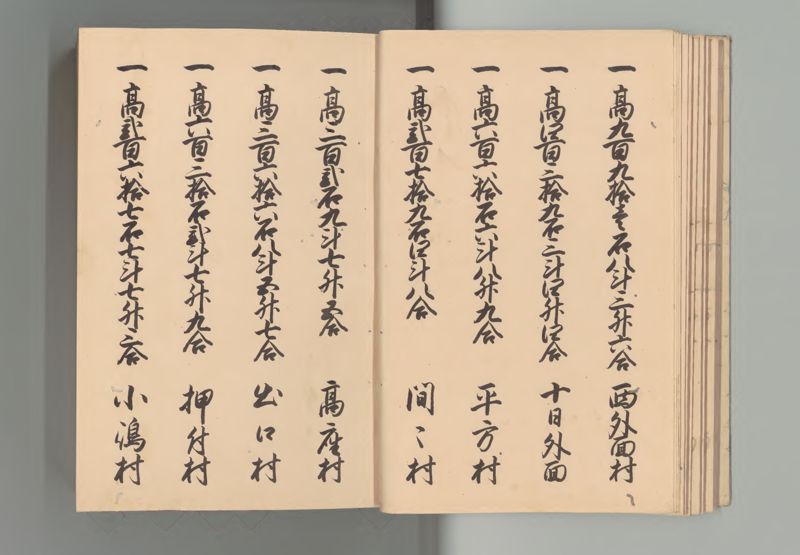 一高九百九拾壱石八斗三升六合 西外面村
一高四百三拾九石三斗四升四合 十日外面
一高六百六拾石六斗八升九合 平方村
一高弐百七拾九石四斗八合 間々村
一高三百弐石九斗七升五合 高座村
一高三百六拾六石八斗五升七合 出口村
一高六百三拾石弐斗七升九合 押付村
一高弐百六拾七石七斗七升二合 小鴻村